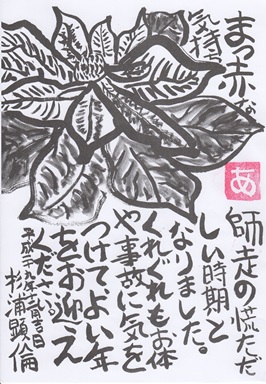 まっ赤な
気持ち
あ
師走の慌ただ
しい時期と
なりました。
くれぐれもお体
や事故に気を
つけて、よい年
をお迎え
ください。
杉浦顕倫